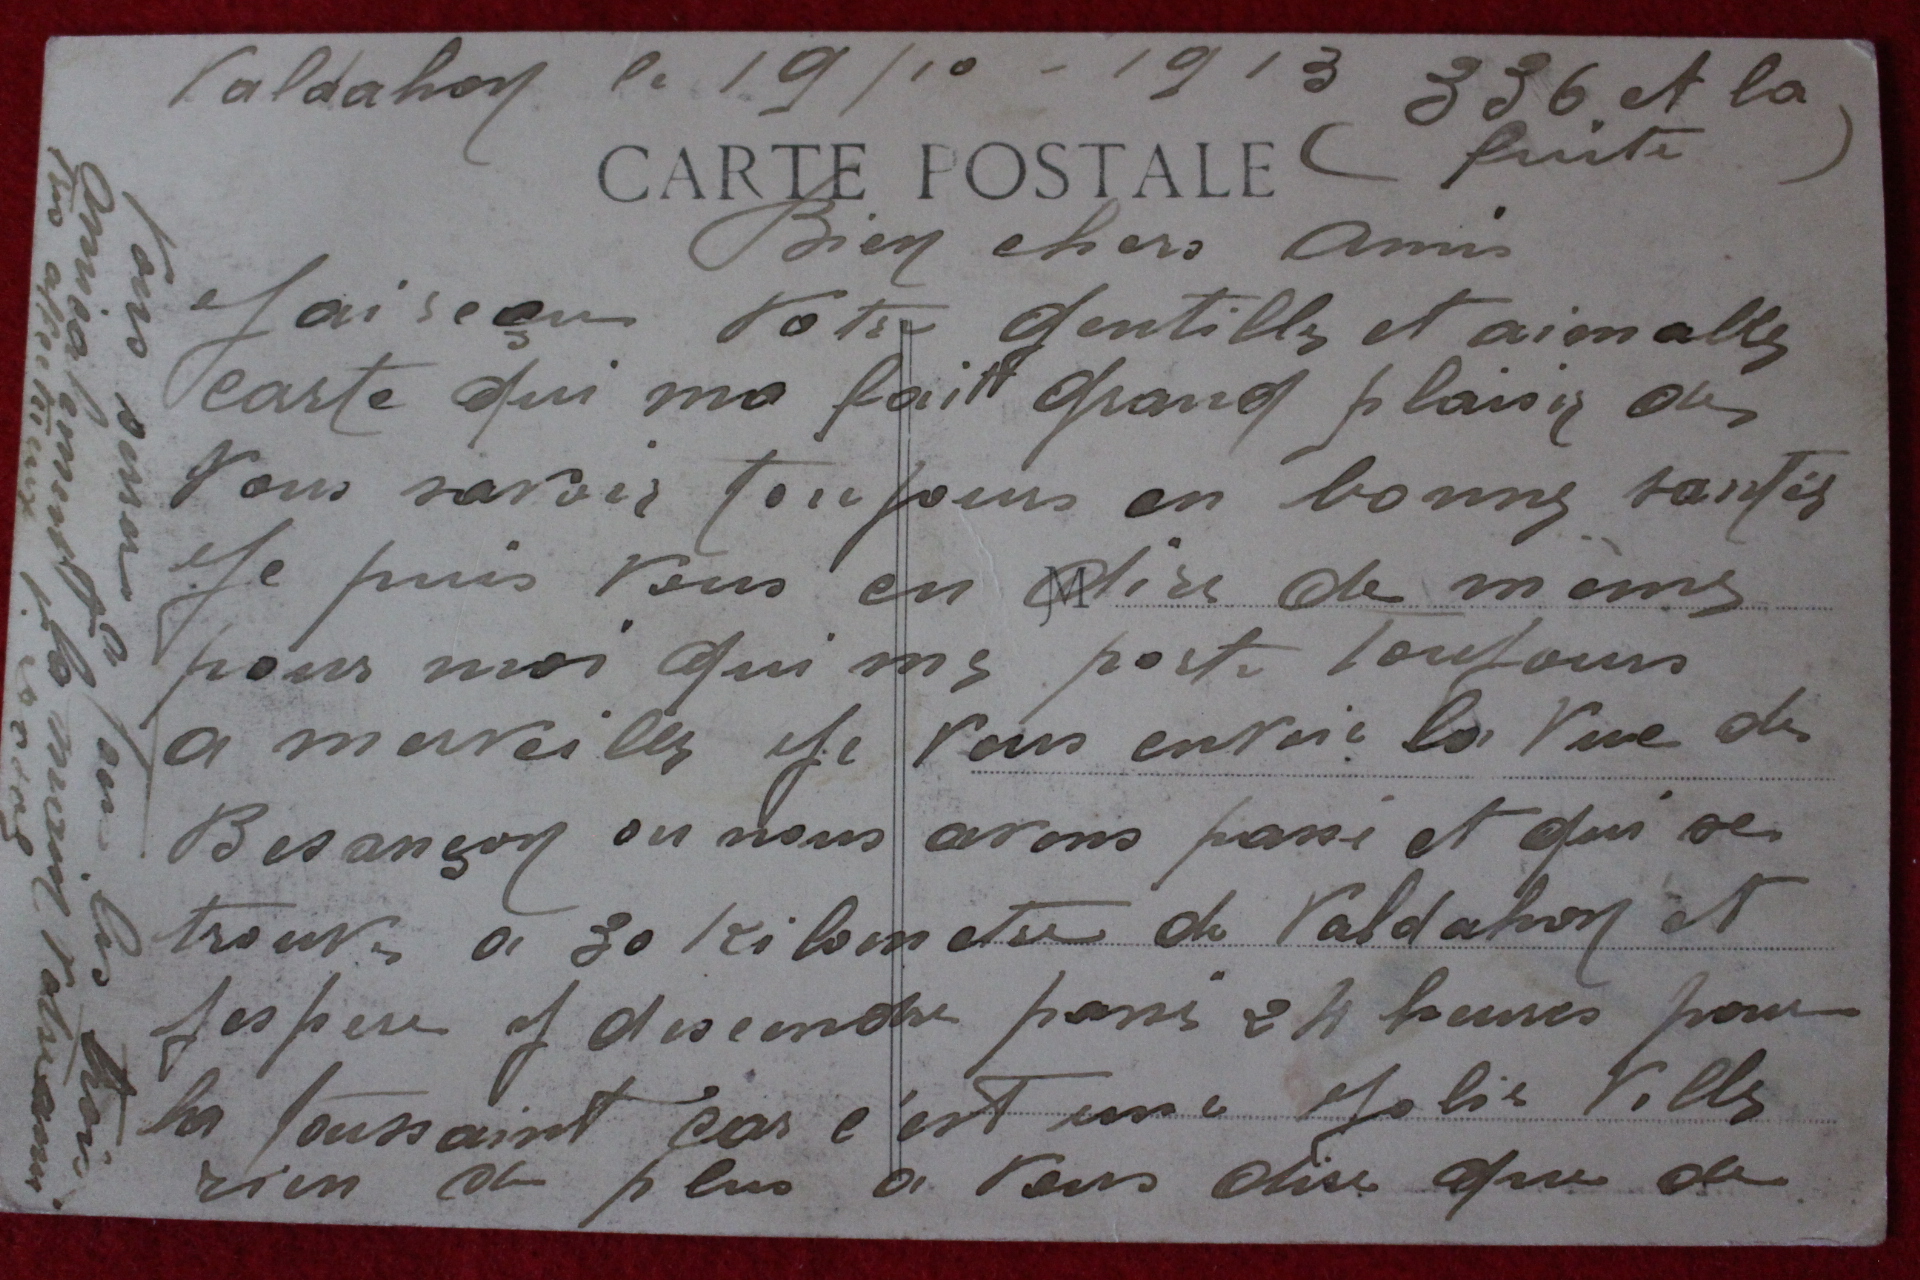 Valdahon le 19/10 - 1913
336 et la
( fuite )
CARTE POSTALE
Bien chers Amis
J'ai reçu Votre gentille et aimable
carte qui ma fait grand plaisir de
Vous savoir toujours en bonne santée
Je puis Vous en dire de même
M
pour moi qui me porte toujours
a merveille Je Vous envoie la Vue de
Besançon ou nous avons passé et qui se
trouve a 30 kilometre de Valdahon et
Jespere y descendre passé 24 heures pour
la Toussaint car c'est une Jolie Ville
rien de plus a Vous dire que de
Vous serrer a tous les trois
Amicalement la main Votre ami